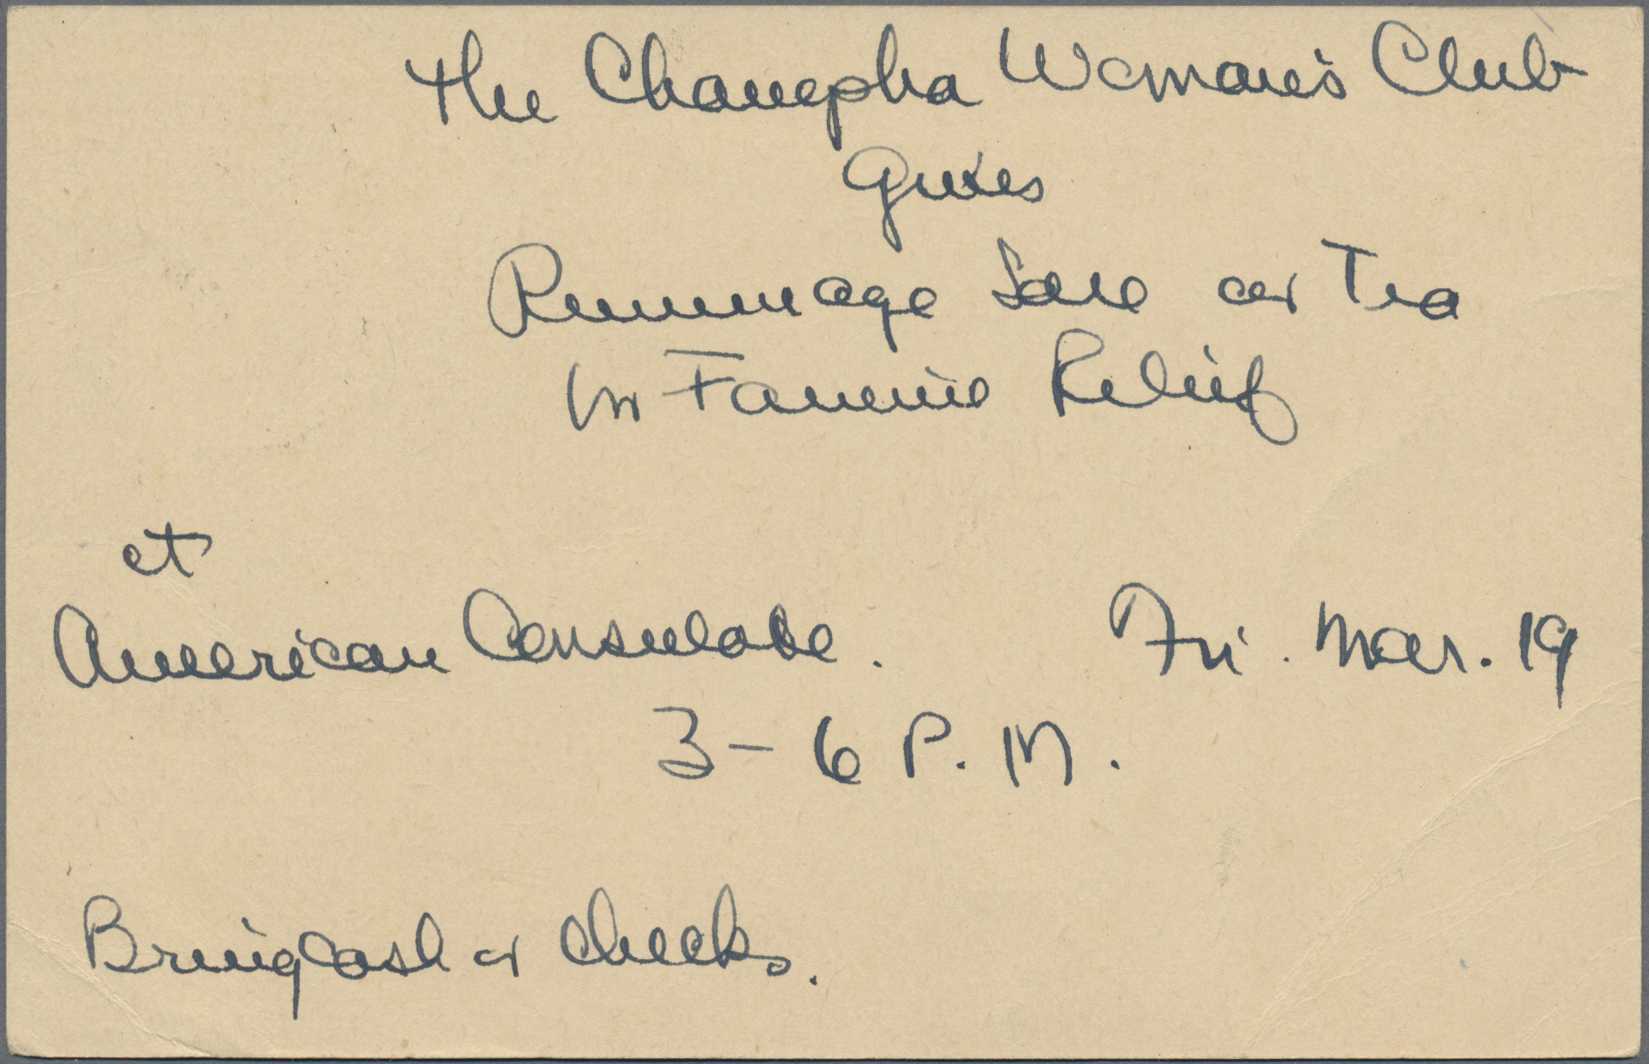 The Changsha Woman's Club
gives
Rummage Sale and Tea
for Famine Relief
at
American Consulate. Fri. Mar. 19
3-6 P.M.
Bring Cash or checks.